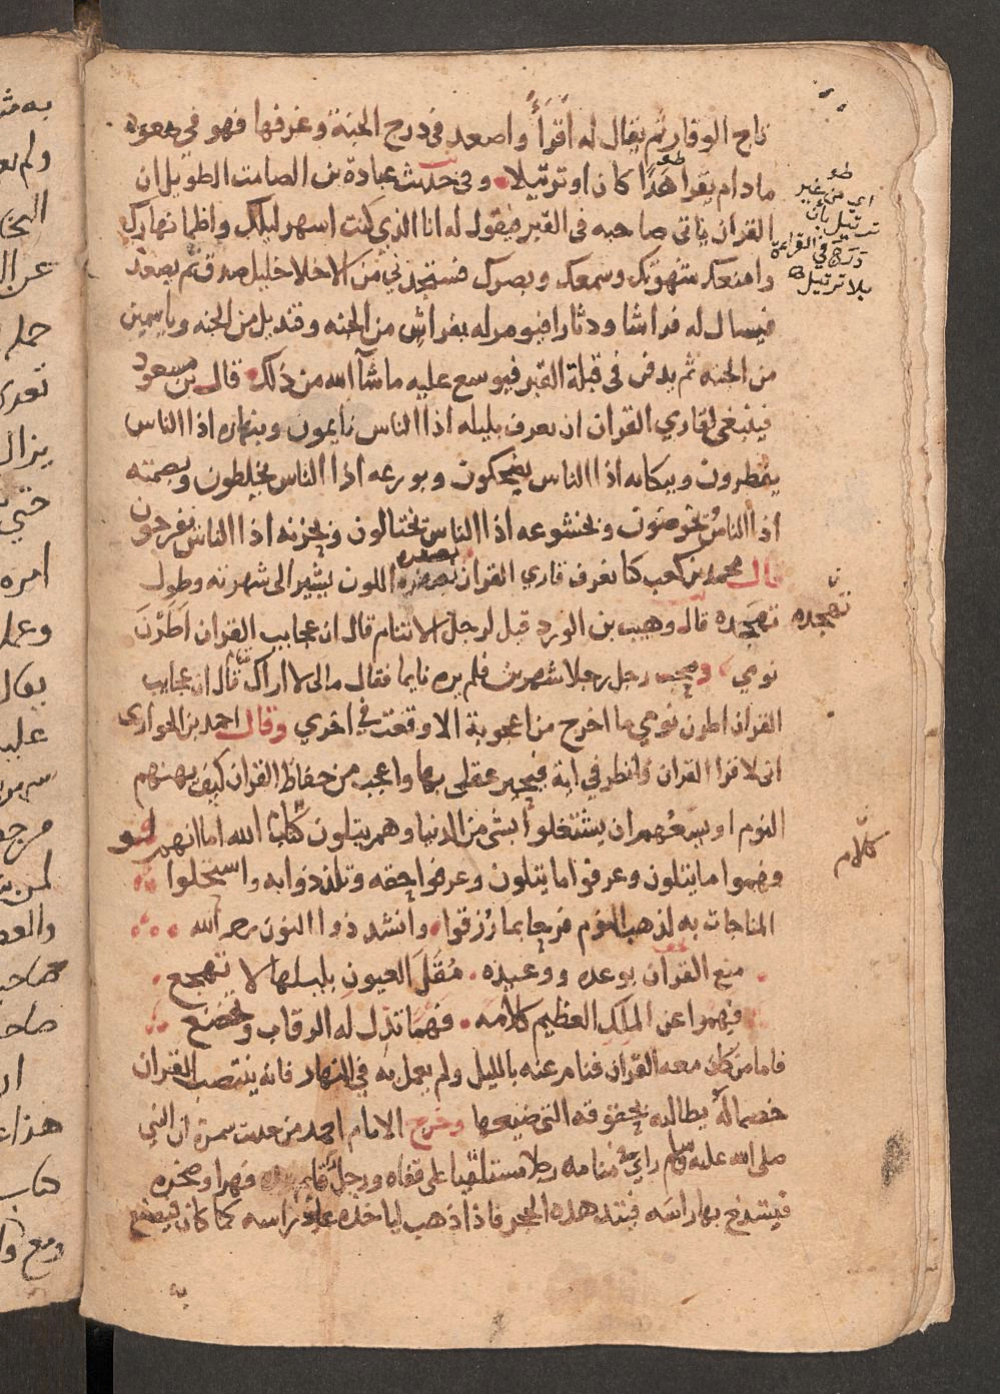 تاج الوقار ثم يقال له أقرأ واصعد في درج الجنة وغرفها فهو في صعود
مادام يقرا هَذًا كان او ترتيلا وفي حديث عبادة بن الصامت الطويل ان
القران ياتي صاحبه في القبر فيقول له انا الذي كنت اسهر ليلك واظما نهارك
وامنعك شهوتك وسمعك وبصرك فستجدني من الاخلا خليل صدق ثم يصعد
فيسال له فراشا ودثارا فيومر له بفراش من الجنه وقنديل من الجنه وياسمين
من الجنه ثم يدفن في قبلة القبر فيوسع عليه ماشآ الله من ذلك قال بن مسعود
فينبغي لقاري القران ان يعرف بليله اذا الناس نايمون وبنهاره اذا الناس
يفطرون وببكايه اذا الناس يضحكون وبورعه اذا الناس يخلطون وبصمته
اذا الناس يخوضون وبخشوعه اذا الناس يختالون وبحزنه اذا الناس يفرحون
قال محمد بن كعب كنا نعرف قاري القران بصفرة اللون يشير الى سهره وطول
تهجده قال وهيب بن الورد قيل لرجل الا تنام قال ان عجايب القران اَطَرْنَ
نومي وصحب رجل رجلا شهرين فلم يره نايما فقال مالى لا اراك نايما قال ان عجايب
القران اطرن نومي ما اخرج من اعجوبة الا وقعت في اخري وقال احمد بن الحواري
اني لاقرا القران وانظر في اية فيحير عقلي بها واعجب من حفاظ القران كيف يهنهم
النوم او يسعهم ان يشتغلوا بشي من الدنيا وهم يتلون كتاب الله اما انهم لو
فهموا ما يتلون وعرفوا ما يتلون وعرفوا حقه وتلذذوا به واستحلوا
المناجات به لذهب النوم فرحا بما رُزقوا وانشد ذوا النون رحمه الله
منع القران بوعده ووعيده مُقَلَ العيون بليلها لا تهجع
فهموا عن الملك العظيم كلامه فهما تذل له الرقاب وتخضع
فاما من كان معه القران فنام عنه بالليل ولم يعمل به في النهار فانه ينتصب القران
خصما له يطالبه بحقوقه التي ضيعها وخرج الامام احمد من حديث سمرة ان النبي
صلى الله عليه وسلم راي في منامه رجلا مستلقيا على قفاه ورجل قايم بيده فهرا وصخره
فيشدخ بها راسه فيتدهده الحجر فاذا ذهب لياخذه عاد راسه كما كان فيصنع
به
اي من غير
ترتيل بأن
درج في القراءة
بلا ترتيل
تهجده
كلام